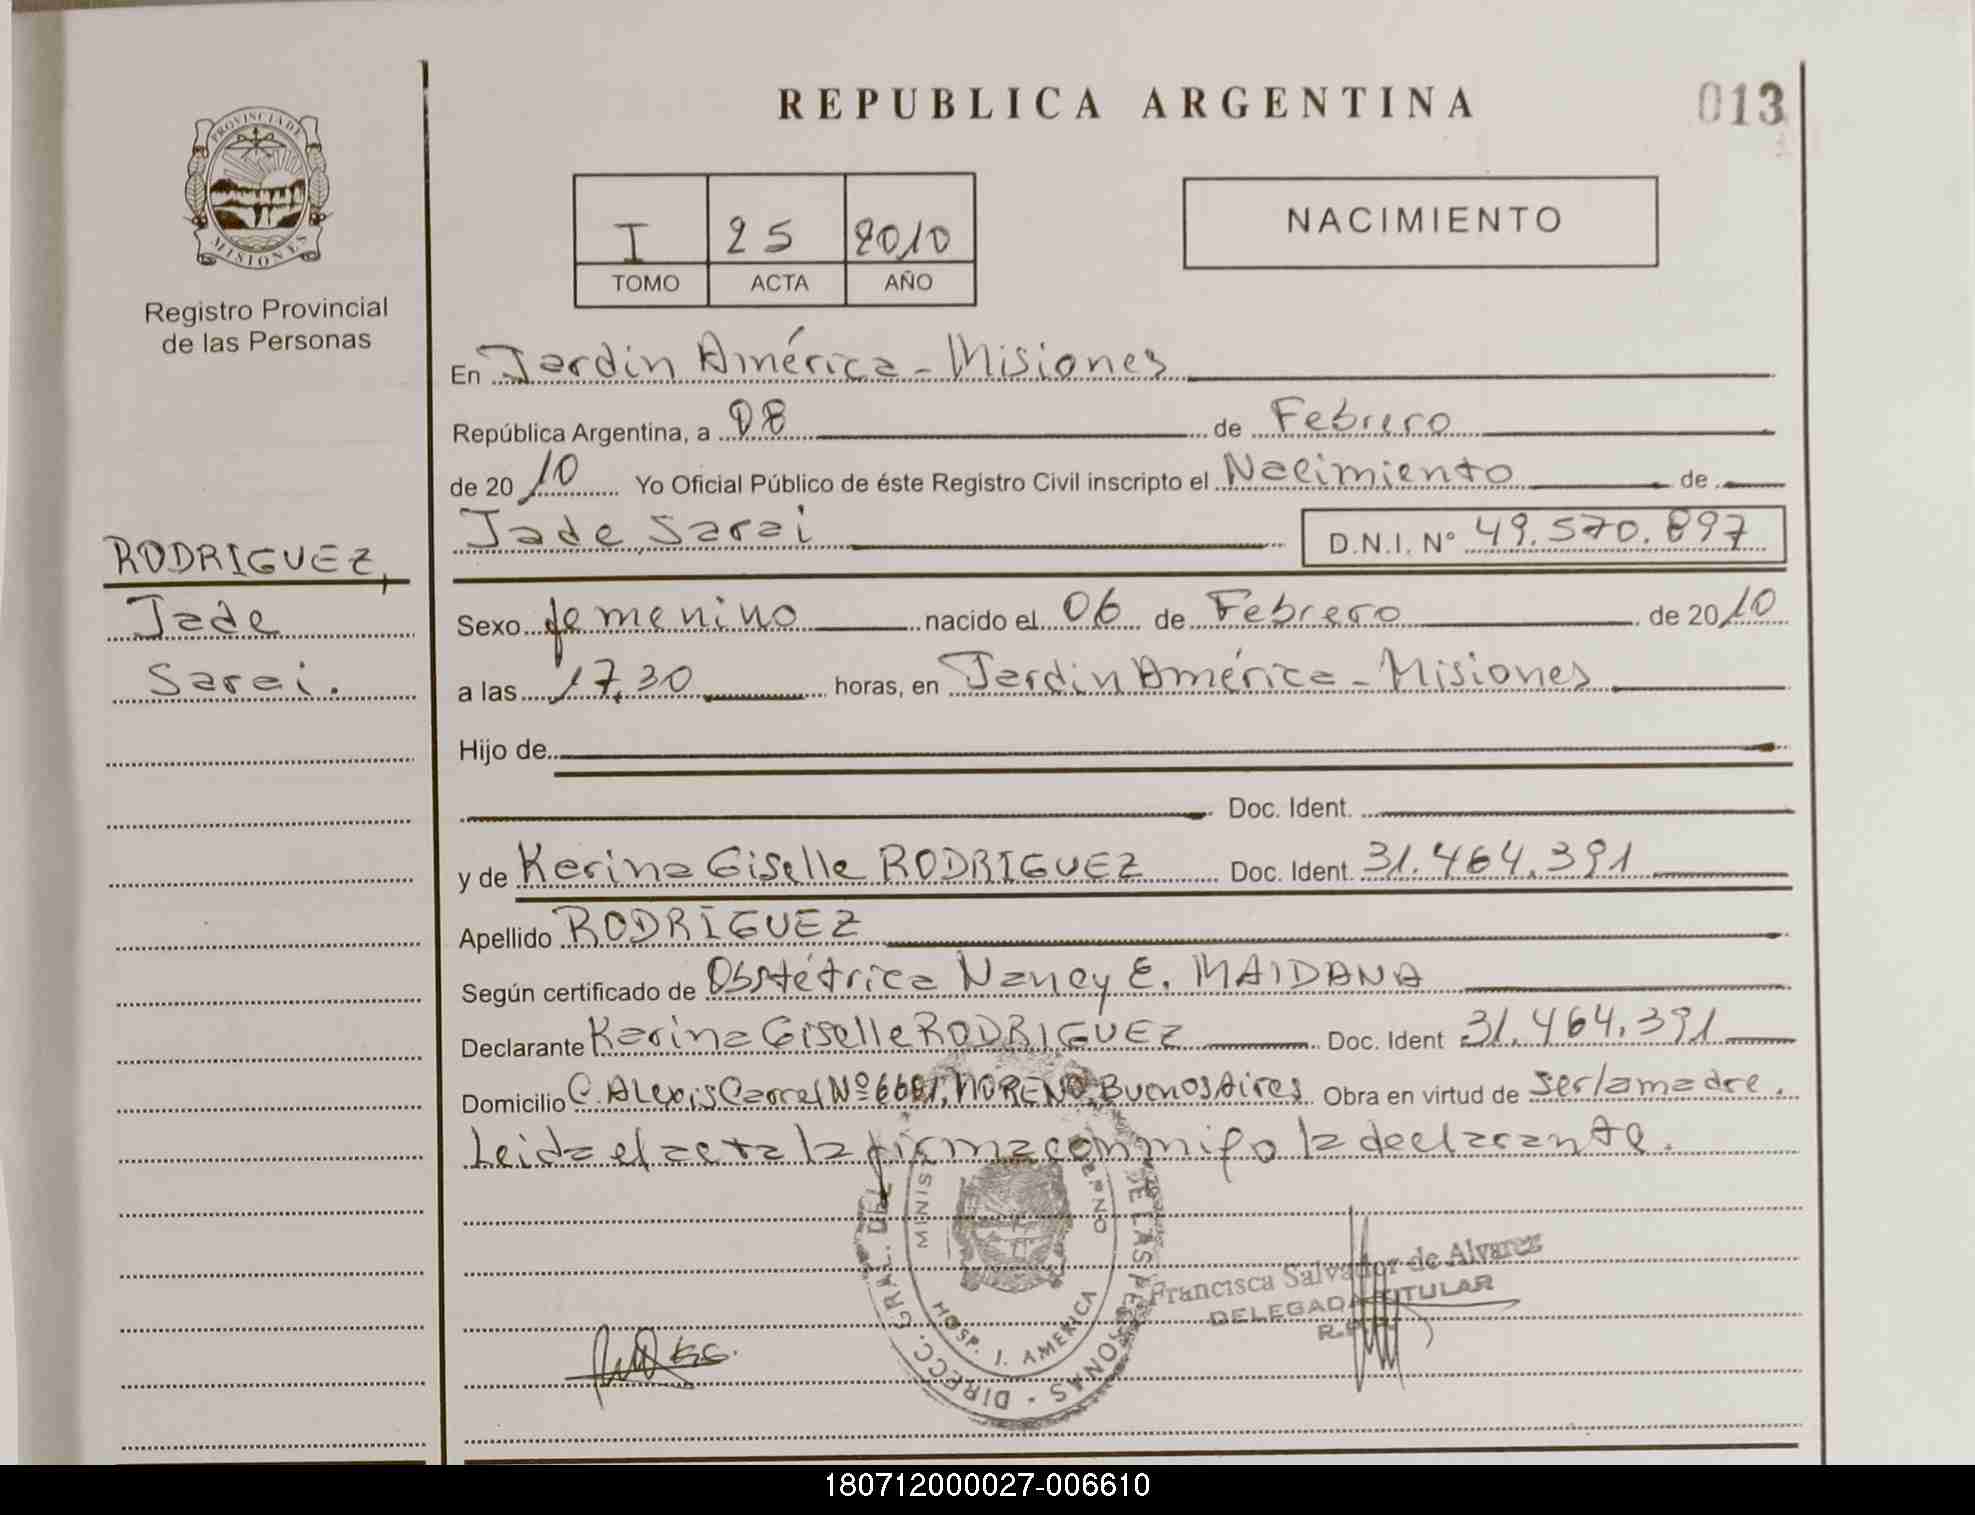 REPUBLICA ARGENTINA
013
PROVINCIA DE
MISIONES
Registro Provincial
de las Personas
I 25 2010
TOMO ACTA AÑO
NACIMIENTO
En Jardín América - Misiones
República Argentina, a 08 de Febrero
de 20 10 Yo Oficial Público de éste Registro Civil inscripto el Nacimiento de
Jade Sarai D.N.I. N° 49.570.897
RODRIGUEZ,
Jade
Sarai.
Sexo femenino nacido el 06 de Febrero de 20 10
a las 17,30 horas, en Jardin América - Misiones
Hijo de
Doc. Ident.
y de Karina Giselle RODRIGUEZ Doc. Ident. 31.464.391
Apellido RODRIGUEZ
Según certificado de Obstétrica Nancy E. MAIDANA
Declarante Karina Giselle RODRIGUEZ Doc. Ident 31.464.391
Domicilio C. Alexis Carrel Nº MORENO, Buenos Aires Obra en virtud de ser la madre.
Leida el acta la firma conmigo la declarante.
DIRECC. GRAL. DEL DE LAS PERSONAS
HOSP. J. AMERICA
Francisca Salvador de Alvarez
DELEGADA TITULAR
R.P.P.
180712000027-006610